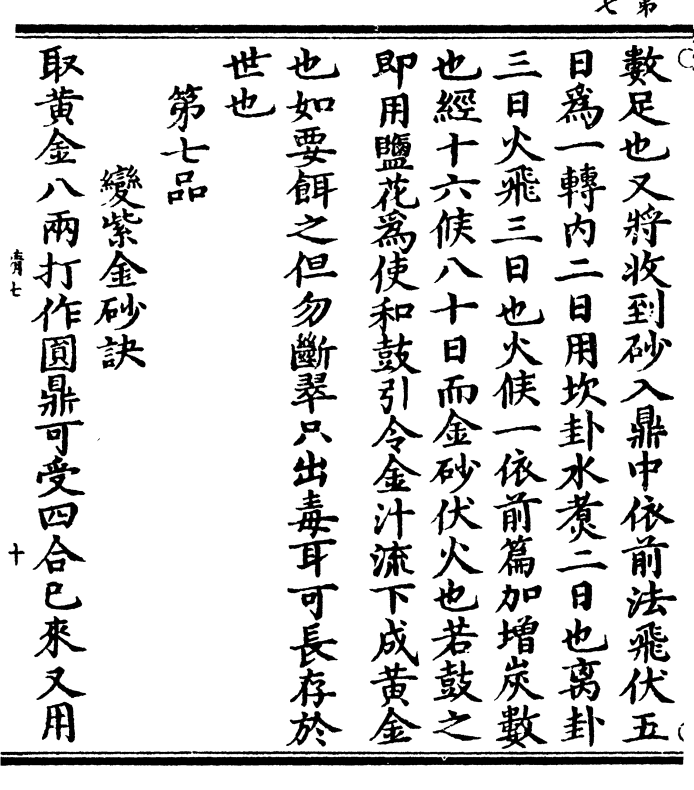 第七
數足也又將收到砂入鼎中依前法飛伏五
日為一轉内二日用坎卦水煑二日也离卦
三日火飛三日也火候一依前篇加增炭數
也經十六候八十日而金砂伏火也若鼓之
即用鹽花為使和鼓引令金汁流下成黄金
也如要餌之但勿斷翠只出毒耳可長存於
世也
第七品
變紫金砂訣
取黄金八兩打作圎鼎可受四合已來又用
十